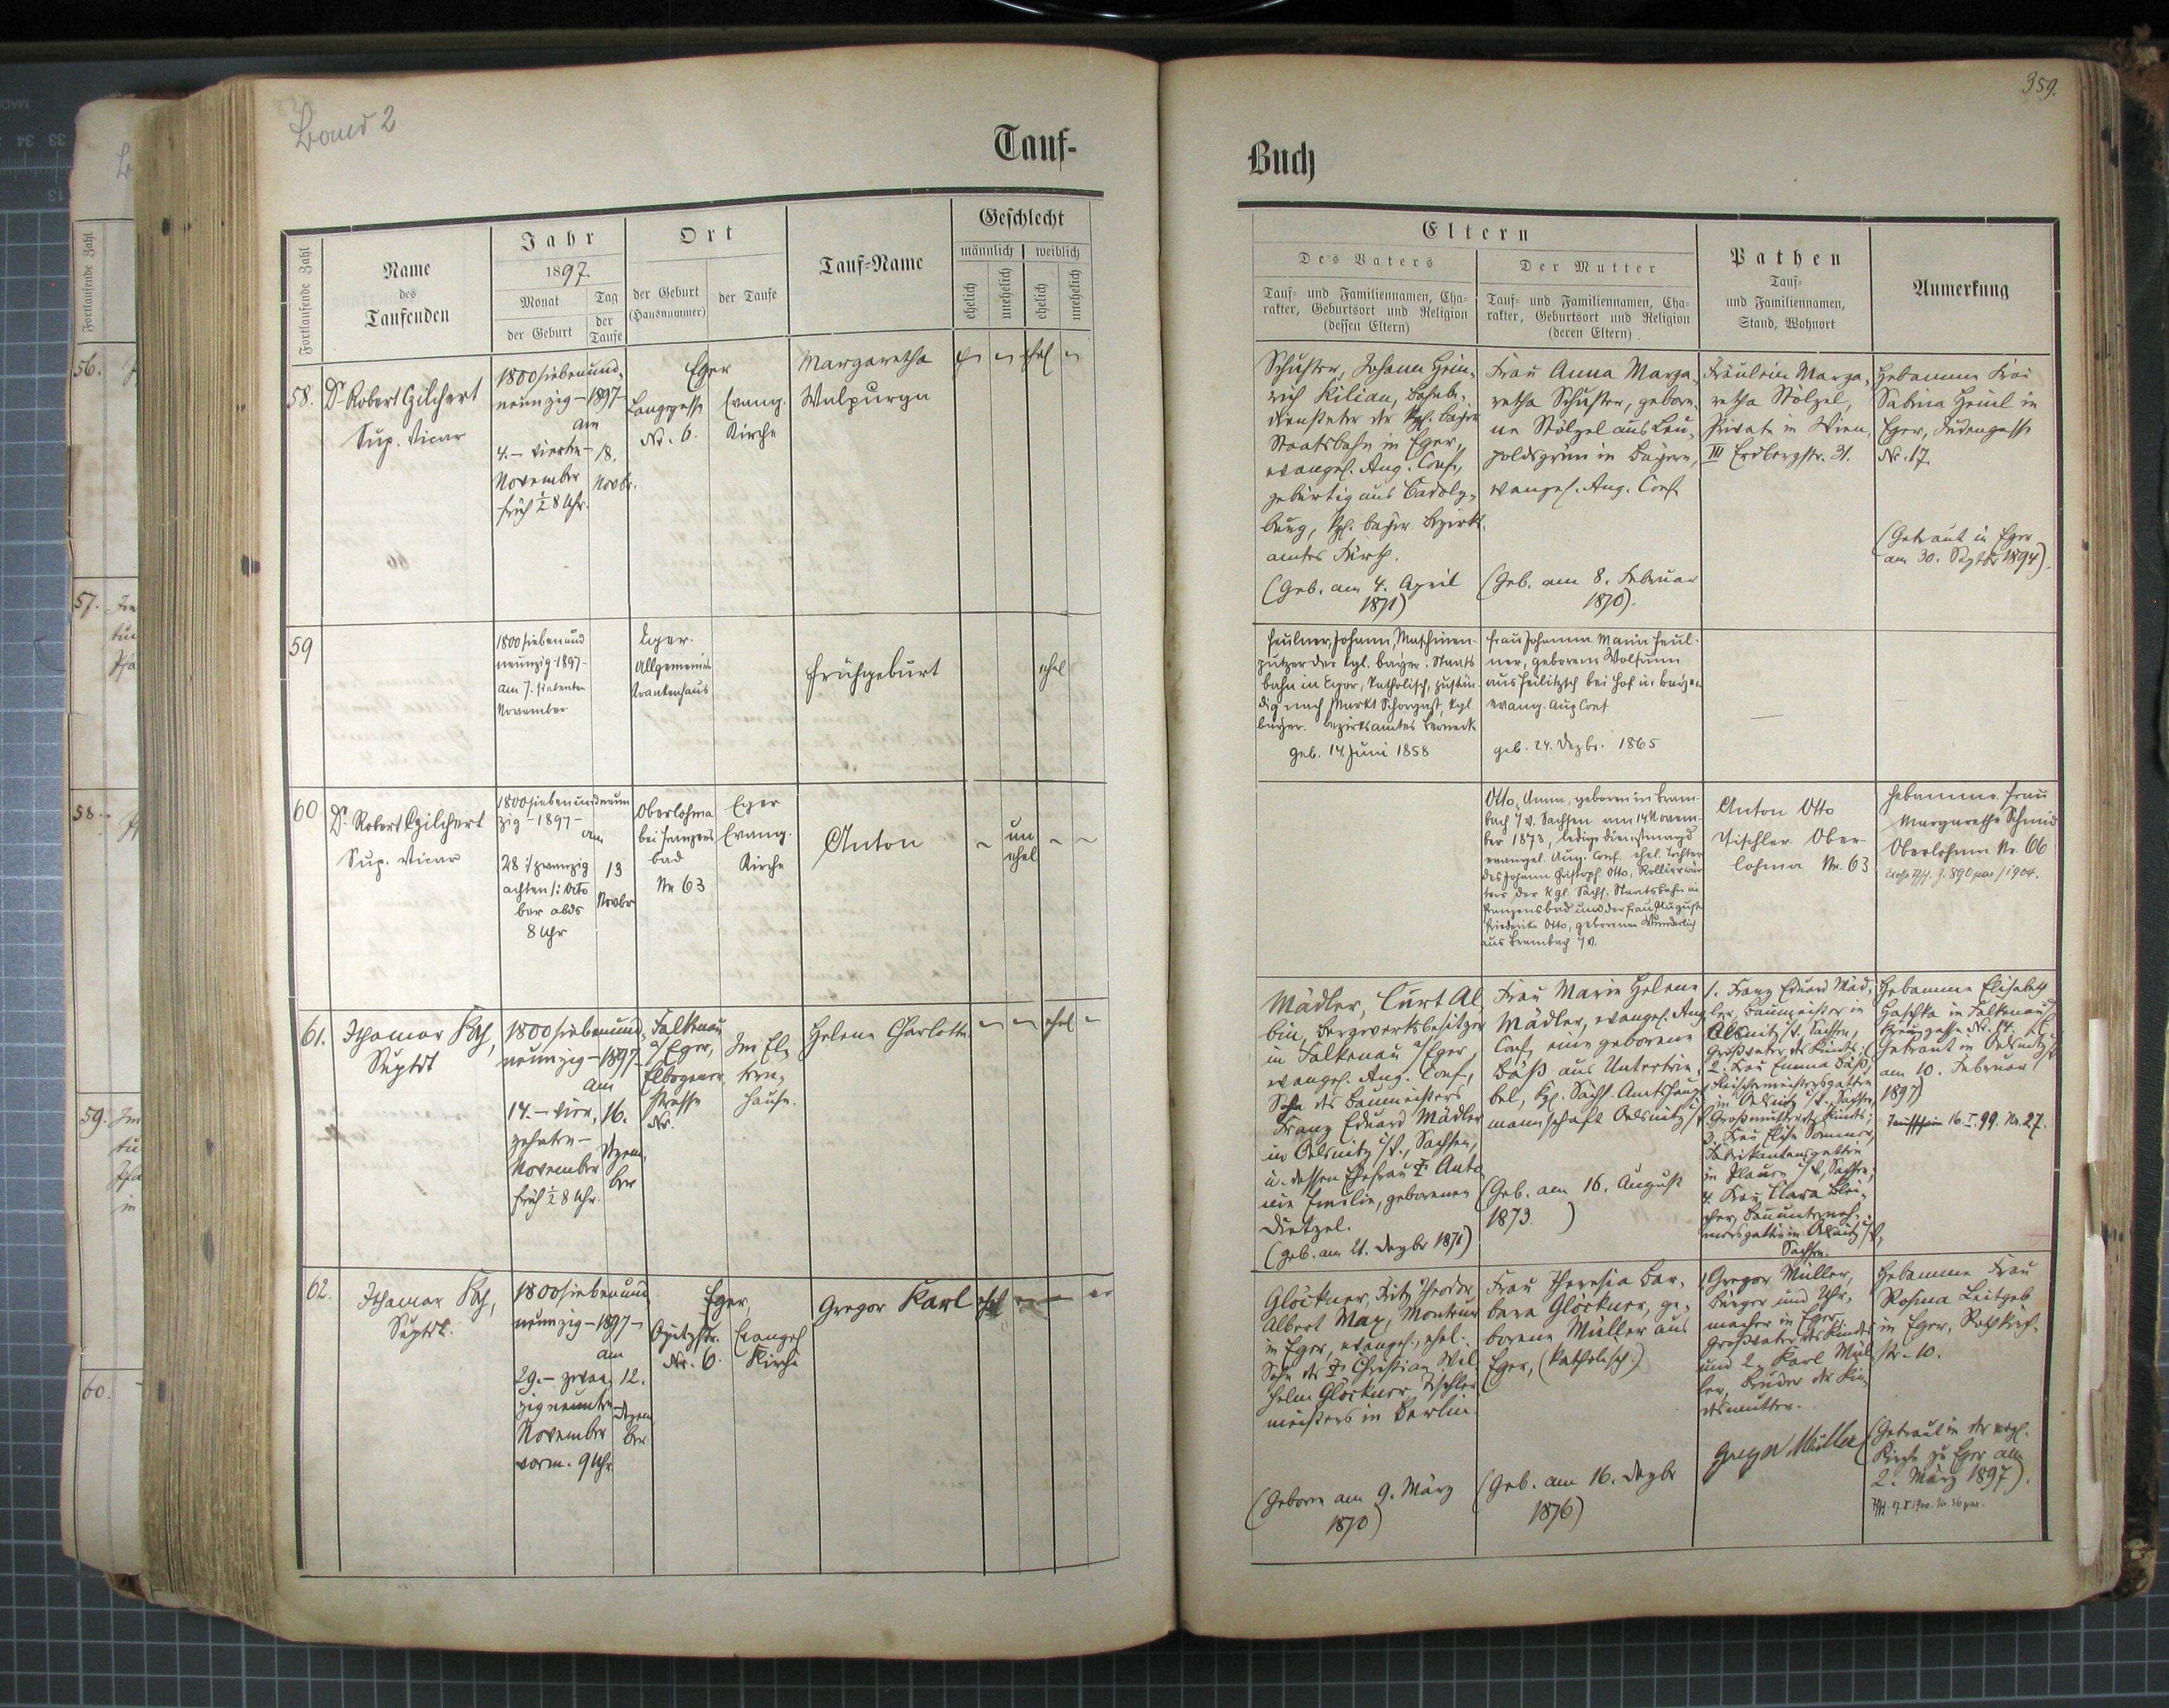 359.
Band 2
Tauf-
Buch
Fortlaufende Zahl
Name
des
Taufenden
Jahr
1897.
Monat
der Geburt
Tag
der
Taufe
Ort
der Geburt
(Hausnummer)
der Taufe
Tauf-Name
Geschlecht
männlich
weiblich
ehelich
unehelich
ehelich
unehelich
Eltern
Des Vaters
Tauf- und Familiennamen, Cha-
rakter, Geburtsort und Religion
(dessen Eltern)
Der Mutter
Tauf- und Familiennamen, Cha-
rakter, Geburtsort und Religion
(deren Eltern)
Pathen
Tauf-
und Familiennamen,
Stand, Wohnort
Anmerkung
58.
Dr. Robert Gilchert
Sup. Vicar
1800 siebenund-
neunzig - 1897 -
am
4. - vierten -
November
früh ½ 8 Uhr.
18.
Novbr.
Eger
Langegasse
Nr. 6.
Evang.
Kirche
Margaretha
Walpurga
ehel
Schuster, Johann Hein-
rich Kilian, Bahnbe-
diensteter der kgl. bayer.
Staatsbahn in Eger,
evangel. Aug. Conf.,
gebürtig aus Cadolz-
burg, kgl. bayer. Bezirks-
amtes Fürth.
(Geb. am 4. April
1871)
Frau Anna Marga-
retha Schuster, gebore-
ne Stölzel aus Leu-
poldsgrün in Bayern,
evangel. Aug. Conf.
(Geb. am 8. Februar
1870).
Fräulein Marga-
retha Stölzel,
Private in Wien,
III Erdbergstr. 31.
Hebamme Frau
Sabina Heinl in
Eger, Judengasse
Nr. 17.
(Getraut in Eger
am 30. Septbr 1894).
59
1800 siebenund
neunzig - 1897 -
am 7. siebenten
November
Eger.
Allgemeines
Krankenhaus
Frühgeburt
ehel
Feulner, Johann, Maschinen-
putzer der kgl. bayer. Staats
bahn in Eger, katholisch, zustän-
dig nach Markt Schorgast, kgl.
bayer. Bezirksamtes Berneck
geb. 14. Juni 1858
Frau Johanna Maria Feul-
ner, geborene Wolfrum
aus Feilitzsch bei Hof in Bayern
evang. Aug Conf
geb. 24. Dezbr. 1865
60
Dr. Robert Gilchert
Sup. Vicar
1800 siebenundneun
zig - 1897 -
am
28 /: zwanzig
achten :/ Octo
ber abds
8 Uhr
13
Novbr
Oberlohma
bei Franzens
bad
Nr 63
Eger
Evang.
Kirche
Anton
un
ehel
Otto, Anna, geboren in Bram-
bach i/V. Sachsen am 14 Novem-
ber 1873, ledige Dienstmagd
evangel. Aug. Conf. ehel. Tochter
des Johann Christoph Otto,
der kgl. Sächs. Staatsbahn in
Franzensbad und der Frau Auguste
Friederike Otto, geborenen Wunderlich
aus Brambach i/V.
Anton Otto
Tischler Ober-
lohma Nr. 63
Hebamme Frau
Margarethe Schmid
Oberlohma Nr. 66
61.
Ithamar Koch,
Suptdt
1800 siebenund-
neunzig - 1897
am
14. - vier-
zehnten -
November
früh ½ 8 Uhr.
16.
Dezem-
ber
Falkenau
a/Eger,
Elbogener-
strasse
Nr.
Im El-
tern-
hause.
Helene Charlotte
ehel
Mädler, Curt Al-
bin, Bergwerksbesitzer
in Falkenau a/Eger,
evangel. Aug. Conf.,
Sohn des Baumeisters
Franz Eduard Mädler
in Oelsnitz i/V., Sachsen,
u. dessen Ehefrau Anto-
nie Emilie, geborenen
Dietzel.
(geb. am 21. Dezbr 1871)
Frau Marie Helene
Mädler, evangel. Aug.
Conf., eine geborene
Böß aus Untertrie-
bel, kgl. Sächs. Amtshaupt-
mannschaft Oelsnitz i/V.
(Geb. am 16. August
1873.)
1. Franz Eduard Mäd-
ler, Baumeister in
Oelsnitz i/V. Sachsen,
Großvater des Kindes;
2. Frau Emma Böß,
in Oelsnitz i/V., Sachsen,
Großmutter des Kindes;
3. Frau Elise Sommer,
Fabrikantensgattin
in Plauen i/V., Sachsen;
4. Frau Clara Blei-
cher, Bauunterneh-
mersgattin in Oelsnitz i/V,
Sachsen.
Hebamme Elisabeth
Haschka in Falkenau,
Nr. 14.
(Getraut in Oelsnitz i/V.
am 10. Februar
1897)
Taufschein 16. I. 99. Nr. 27.
62.
Ithamar Koch,
Suptdt.
1800 siebenund
neunzig - 1897 -
am
29. - zwan-
zigneunten -
November
vorm. 9 Uhr.
12.
Dezem
ber
Eger,
Opitzstr.
Nr. 6.
Evangel
Kirche
Gregor Karl
ehel
Glöckner, Fritz Theodor
Albert Max, Monteur
in Eger, evangel., ehel.
Sohn des Christian Wil-
helm Glöckner, Tischler-
meisters in Berlin.
(Geboren am 9. März
1870)
Frau Theresia Bar-
bara Glöckner, ge-
borene Müller aus
Eger, (katholisch.)
(Geb. am 16. Dezbr
1876)
1 Gregor Müller,
Bürger und Uhr-
macher in Eger,
Großvater des Kindes
und 2. Karl Mül-
ler, Bruder der Kin-
desmutter.
Gregor Müller
Hebamme Frau
Rosina Leitgeb
in Eger,
str. 10.
(Getraut in der evgl.
Kirche zu Eger am
2. März 1897).
56.
57.
58.
59.
60.